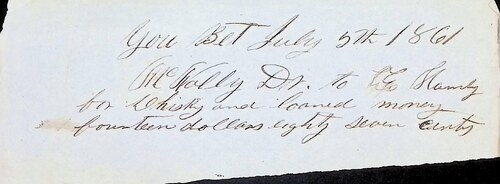 You Bet July 5th 1861
McNally Dr. to Handy
for Whisky and loaned money
fourteen dollars eighty seven cents